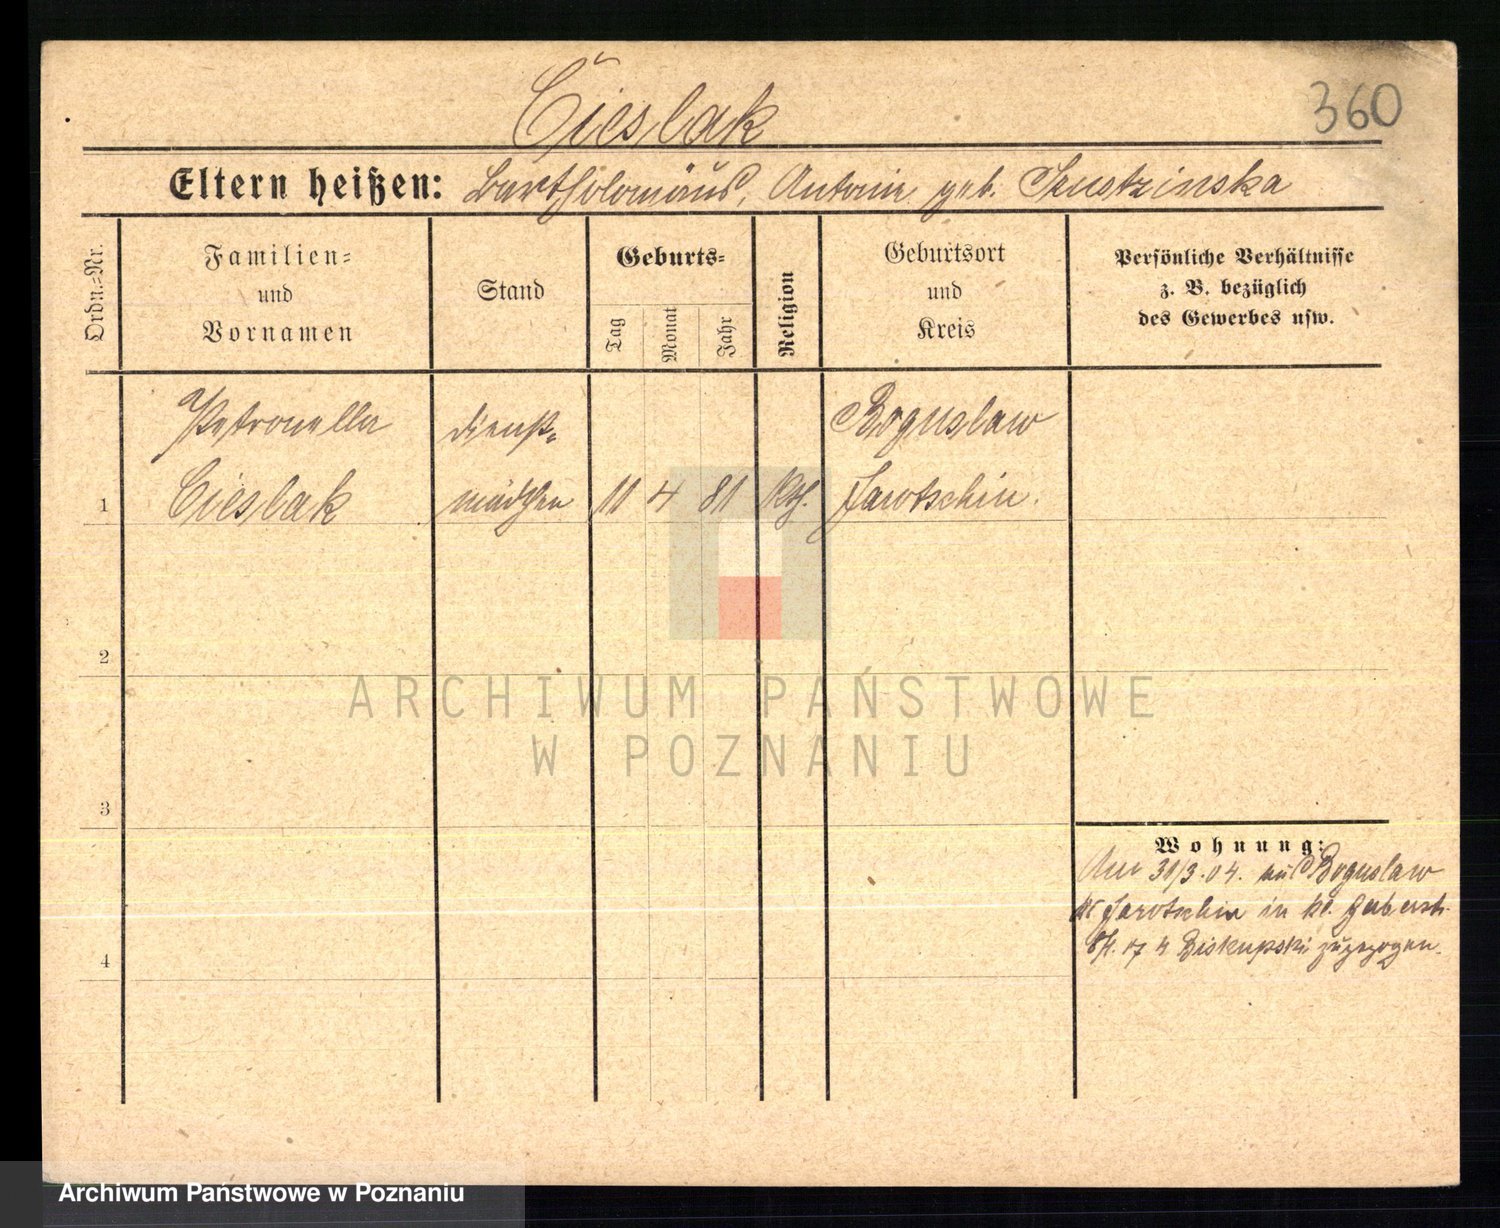 360
Cieslak
Eltern heißen: Bartholomäus, Antonie geb.
Ordn.=Nr.
Familien=
und
Vornamen
Stand
Geburts=
Tag
Monat
Jahr
Religion
Geburtsort
und
Kreis
Persönliche Verhältnisse
z. B. bezüglich
des Gewerbes usw.
Petronella
dienst=
Boguslaw
1 Cieslak mädchen 11 4 81 kth. Jarotschin.
2
3
4
Wohnung:
Am 31/3.04. Boguslaw
Jarotschin in kl. Gerberstr.
17 Biskupski zugezogen.
ARCHIWUM PAŃSTWOWE
W POZNANIU
Archiwum Państwowe w Poznaniu